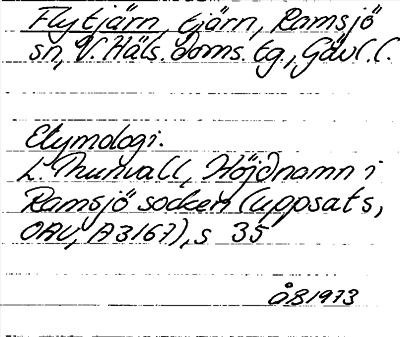 Flytjärn, tjärn, Ramsjö
sn, V. Häls. doms. tg., Gävl. l.
Etymologi.
L. Thunvall, Höjdnamn i
Ramsjö socken (uppsats,
OAU, A3167), s 35
ÅB1973